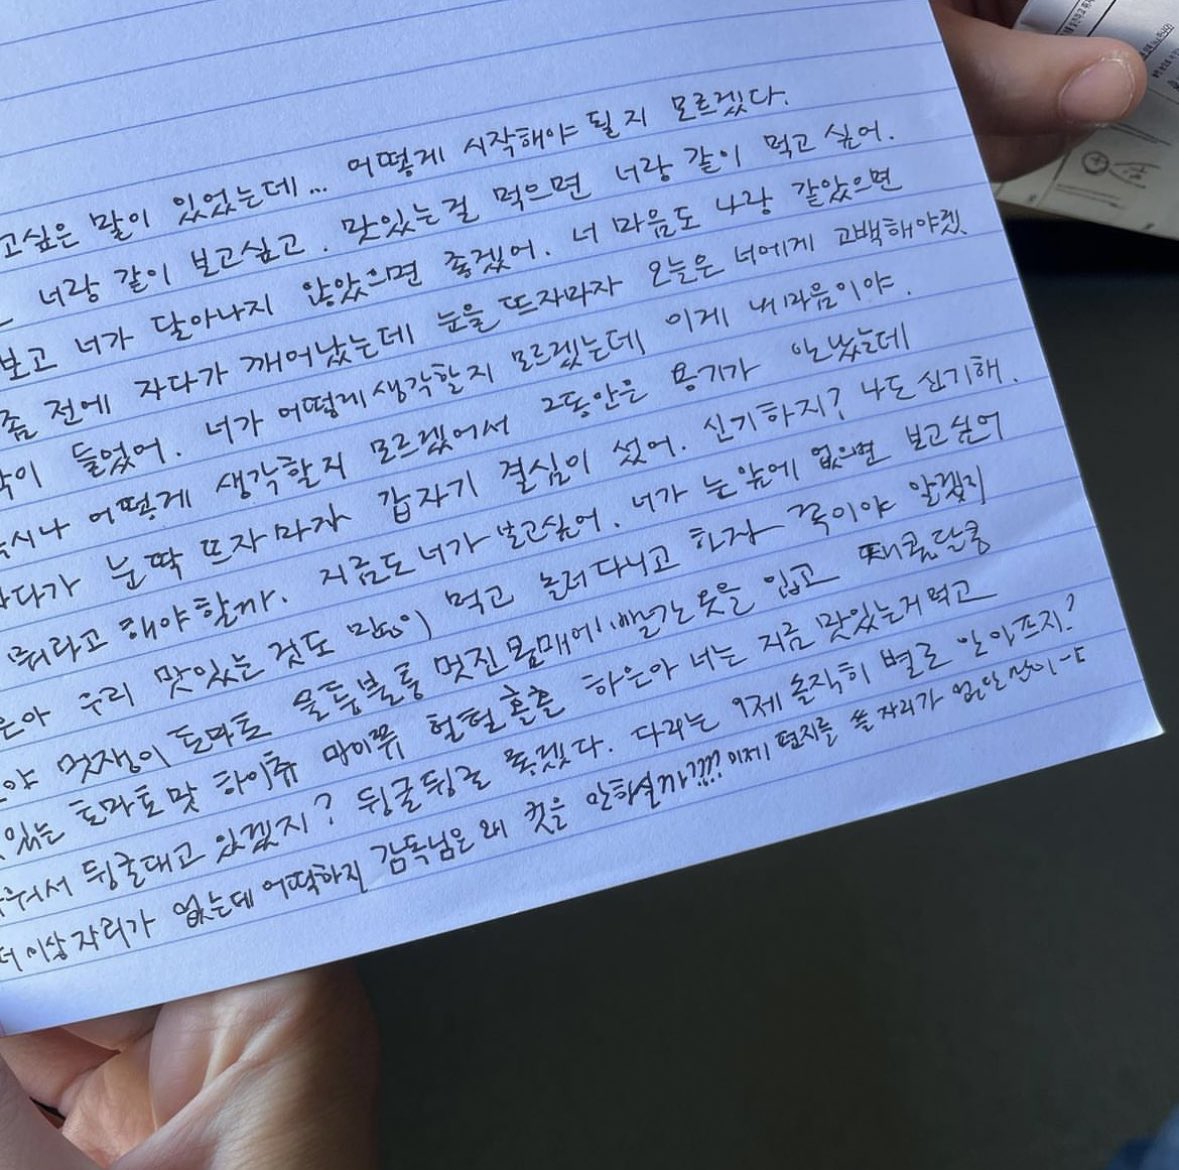 고싶은 말이 있었는데... 어떻게 시작해야 될지 모르겠다.
너랑 같이 보고싶고. 맛있는걸 먹으면 너랑 같이 먹고 싶어.
보고 너가 달아나지 않았으면 좋겠어. 너 마음도 나랑 같았으면
좀 전에 자다가 깨어났는데 눈을 뜨자마자 오늘은 너에게 고백해야겠
각이 들었어. 너가 어떻게 생각할지 모르겠는데 이게 내 마음이야.
시나 어떻게 생각할지 모르겠어서 그동안은 용기가 안났는데
다가 눈 딱 뜨자마자 갑자기 결심이 섰어. 신기하지? 나도 신기해.
뭐라고 해야할까. 지금도 너가 보고싶어. 너가 눈 앞에 없으면 보고싶어
은아 우리 맛있는 것도 많이 먹고 놀러 다니고 하자 꼭이야 알겠지
야 멋쟁이 토마토 울퉁불퉁 멋진 몸매에 빨간 옷을 입고 새콤달콤
있는 토마토맛 하이츄 마이쮸 헐헐 하은아 너는 지금 맛있는거 먹고
워서 뒹굴대고 있겠지? 뒹굴뒹굴 좋겠다. 다리는 이제 솔직히 별로 안 아프지?
더 이상 자리가 없는데 어떡하지 감독님은 왜 컷을 안하실까???? 이제 편지를 쓸 자리가